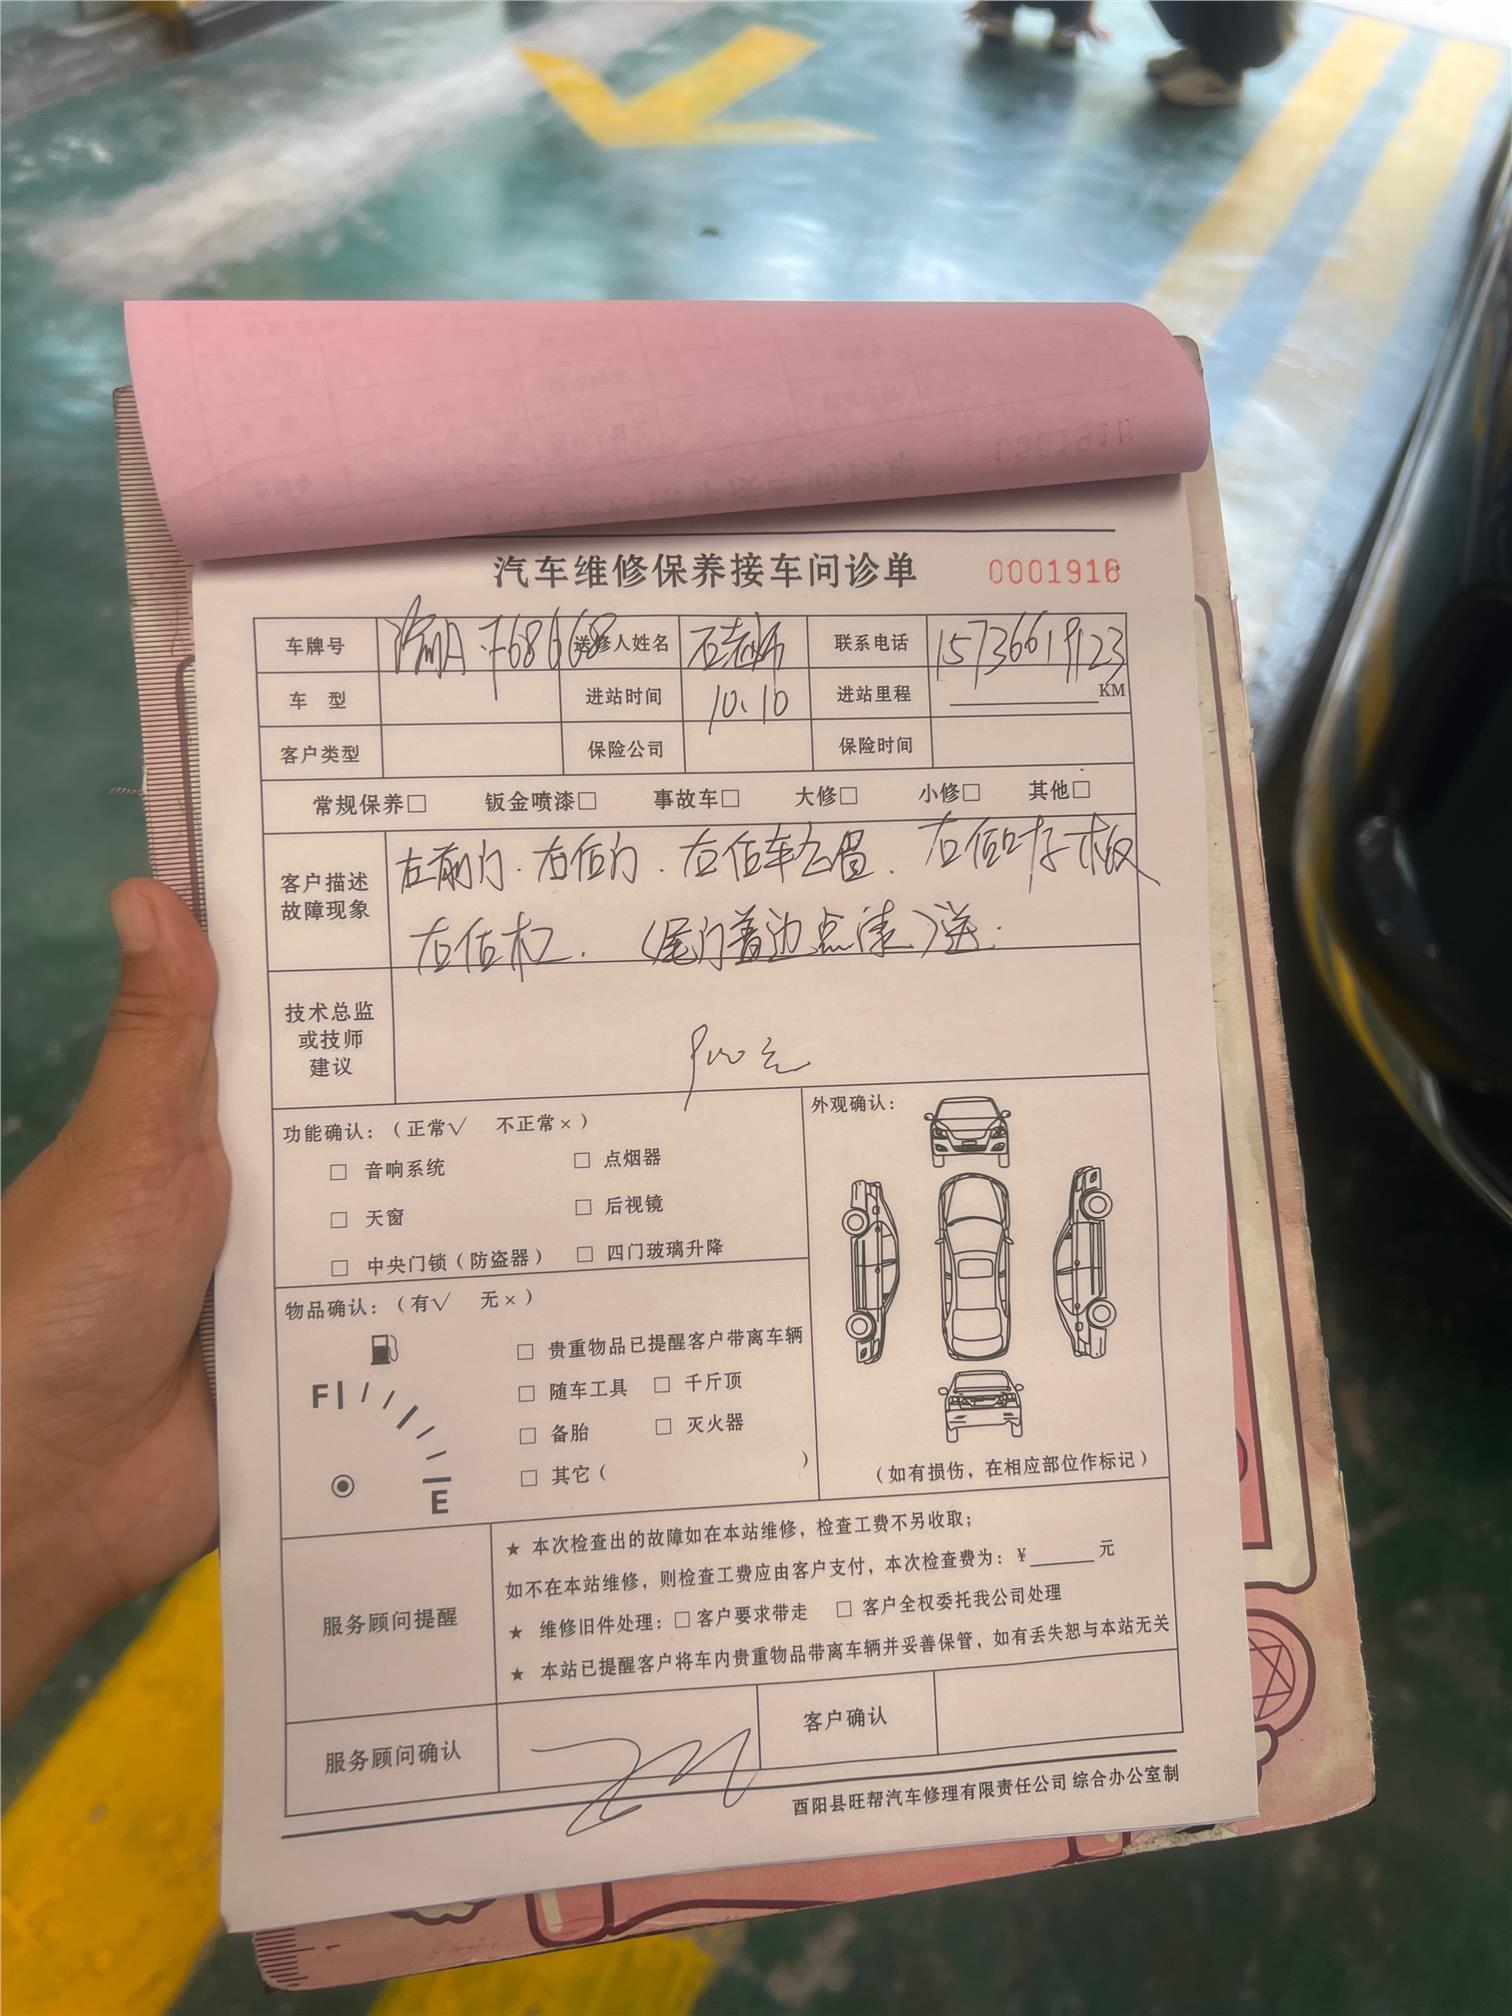 汽车维修保养接车问诊单 0001918
车牌号 送修人姓名 石老师 联系电话 15736619123
车 型 进站时间 10.10 进站里程 KM
客户类型 保险公司 保险时间
常规保养□ 钣金喷漆□ 事故车□ 大修□ 小修□ 其他□
客户描述
故障现象
左前门.右后门.右后车轮眉.右后叶子板
右后杠.(尾门 边点漆)送.
技术总监
或技师
建议
900元
功能确认：（正常√ 不正常×）
□ 音响系统 □ 点烟器
□ 天窗 □ 后视镜
□ 中央门锁（防盗器） □ 四门玻璃升降
外观确认：
（如有损伤，在相应部位作标记）
物品确认：（有√ 无×）
F
E
□ 贵重物品已提醒客户带离车辆
□ 随车工具 □ 千斤顶
□ 备胎 □ 灭火器
□ 其它（ ）
服务顾问提醒
★ 本次检查出的故障如在本站维修，检查工费不另收取；
如不在本站维修，则检查工费应由客户支付，本次检查费为：¥______元
★ 维修旧件处理：□客户要求带走 □ 客户全权委托我公司处理
★ 本站已提醒客户将车内贵重物品带离车辆并妥善保管，如有丢失恕与本站无关
服务顾问确认 客户确认
酉阳县旺帮汽车修理有限责任公司 综合办公室制